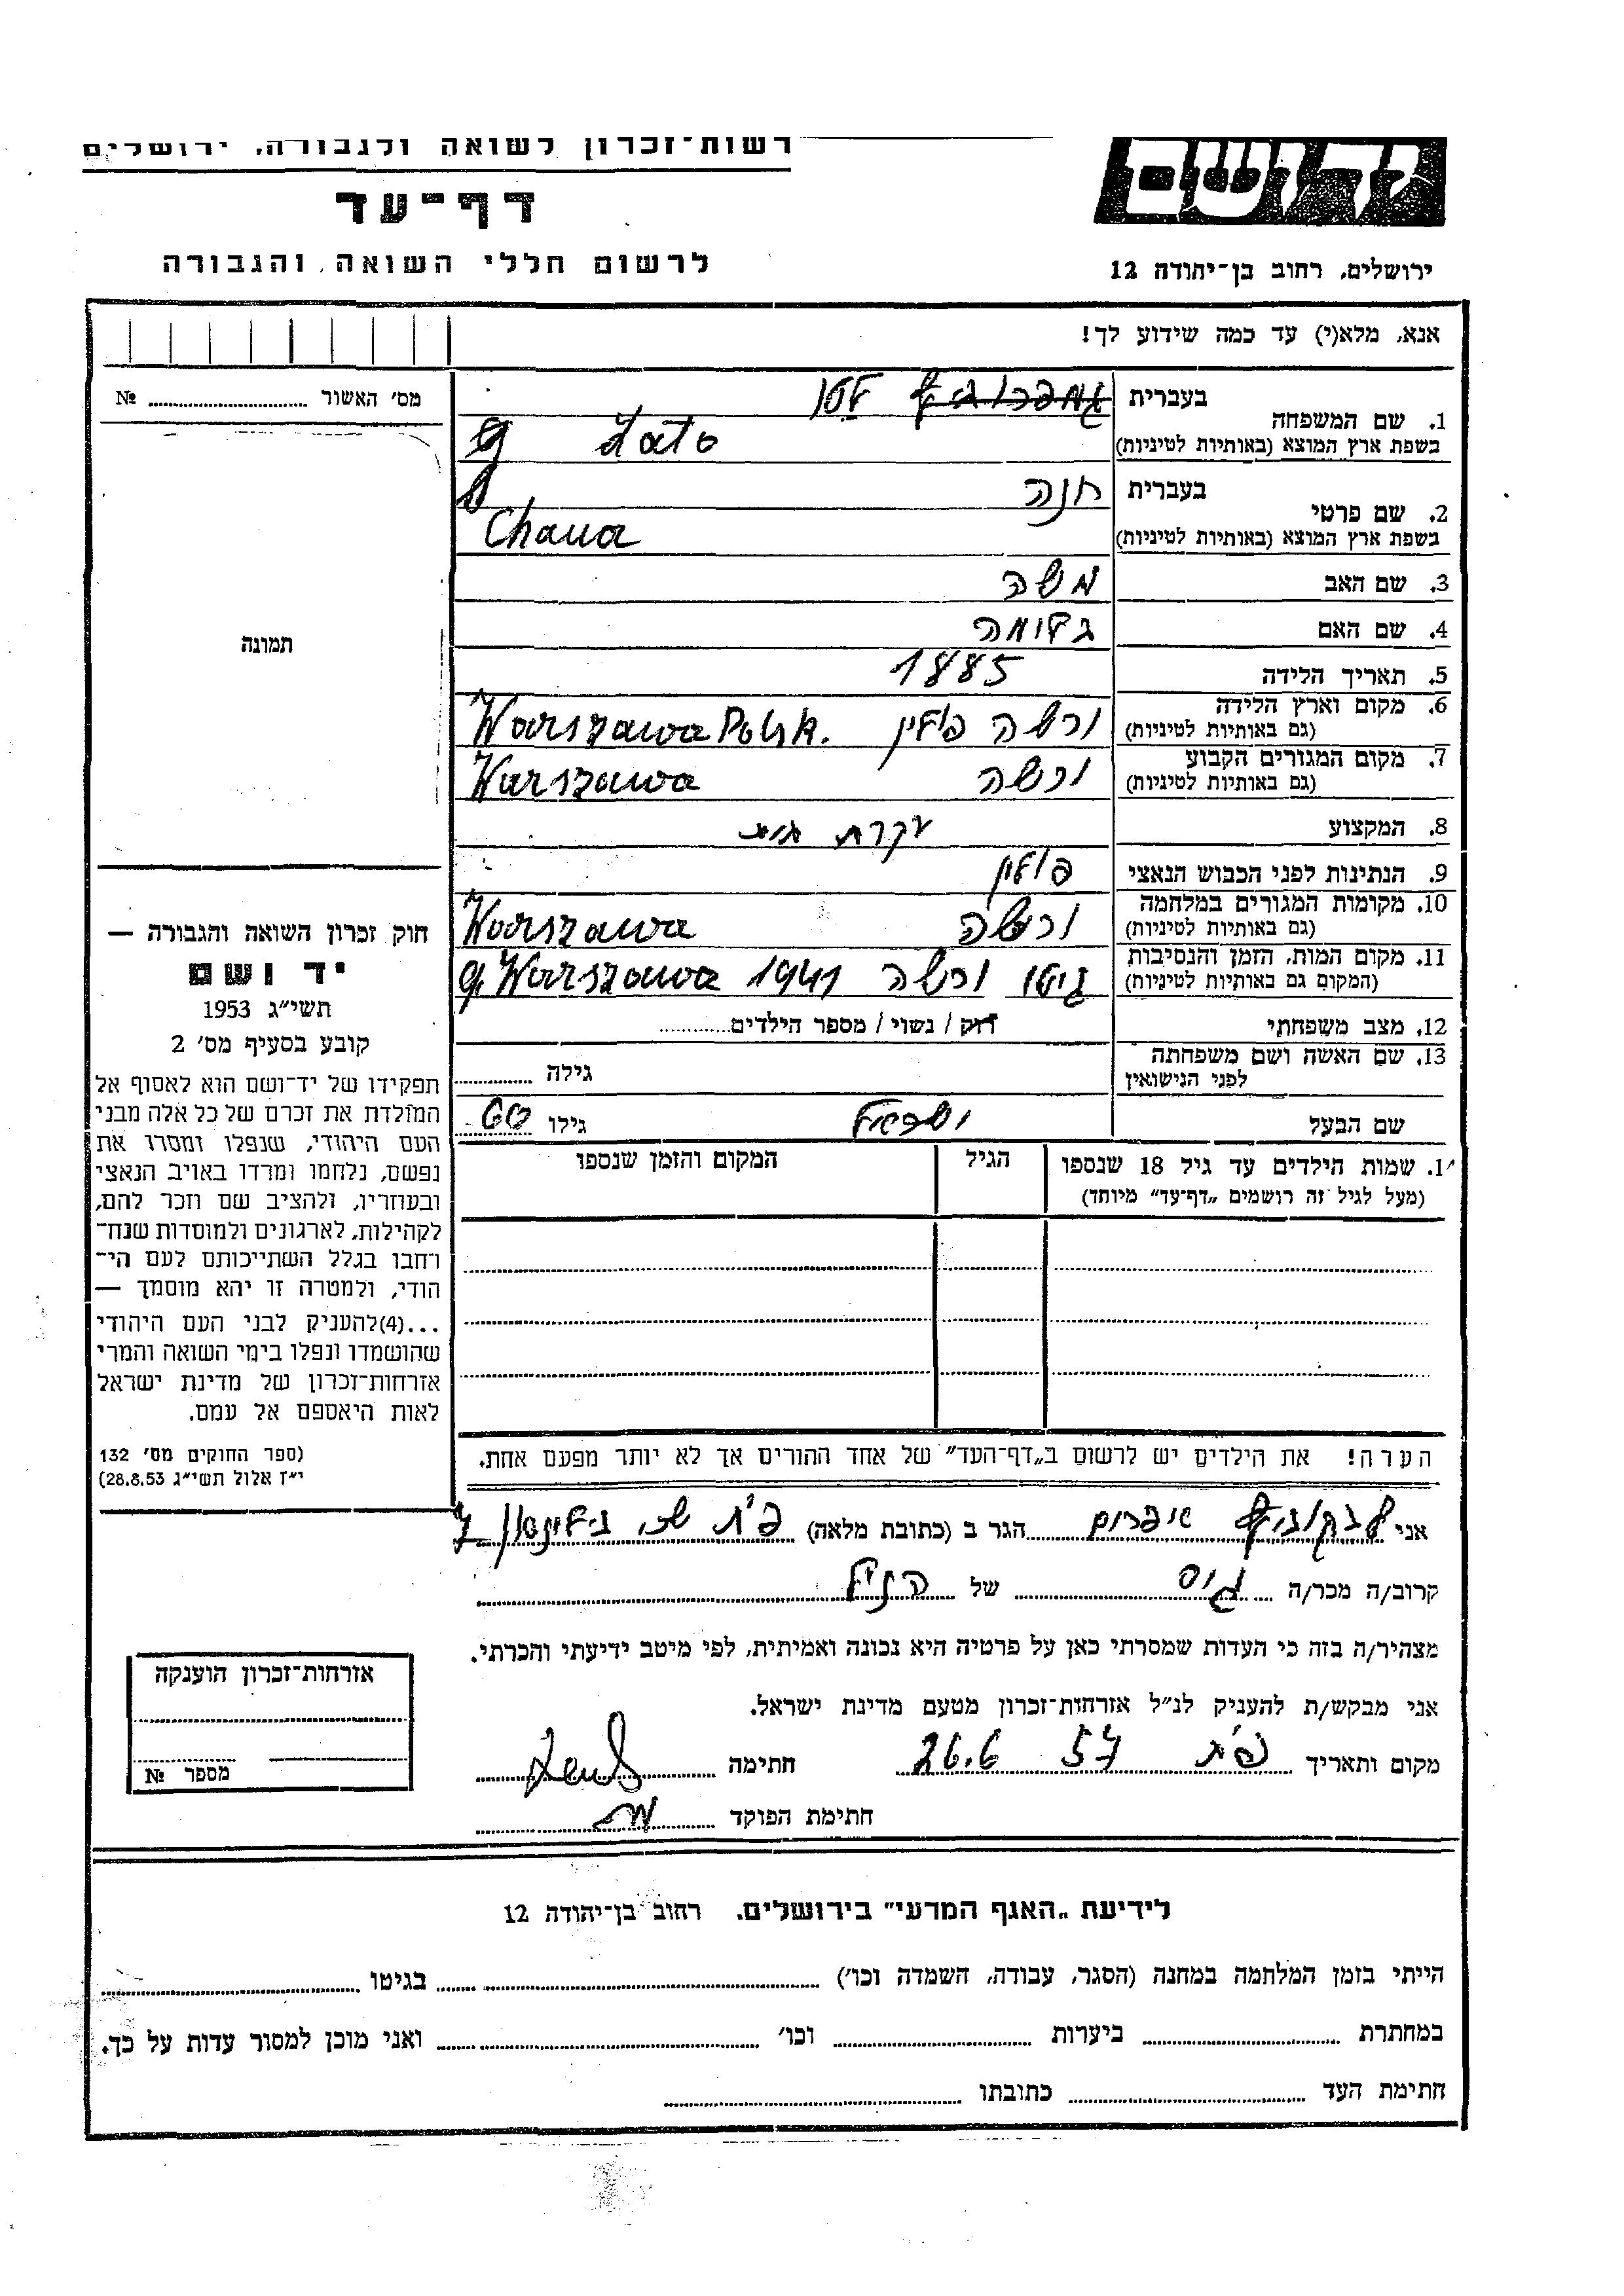 רשות־זכרון לשואה ולגבורה, ירושלים
יד ושם
דף־עד
לרשום חללי השואה והגבורה
ירושלים, רחוב בן־יהודה 12
אנא, מלא(י) עד כמה שידוע לך!
מס' האשור № 
1. שם המשפחה
בעברית לטו
בשפת ארץ המוצא (באותיות לטיניות) Łato
2. שם פרטי
בעברית חנה
בשפת ארץ המוצא (באותיות לטיניות) Chana
3. שם האב משה
4. שם האם
5. תאריך הלידה 1885
6. מקום וארץ הלידה
(גם באותיות לטיניות) ורשה פולין Warszawa Polsk.
7. מקום המגורים הקבוע
(גם באותיות לטיניות) ורשה Warszawa
8. המקצוע עקרת בית
9. הנתינות לפני הכבוש הנאצי פולין
10. מקומות המגורים במלחמה
(גם באותיות לטיניות) ורשה Warszawa
11. מקום המות, הזמן והנסיבות
(המקום גם באותיות לטיניות) גיטו ורשה 1941 g. Warszawa
12. מצב משפחתי רוק / נשוי / מספר הילדים
13. שם האשה ושם משפחתה
לפני הנישואין גילה
שם הבעל גילו 60
שמות הילדים עד גיל 18 שנספו
(מעל לגיל זה רושמים „דף־עד" מיוחד)
הגיל
המקום והזמן שנספו
הערה! את הילדים יש לרשום ב„דף־העד" של אחד ההורים אך לא יותר מפעם אחת.
תמונה
חוק זכרון השואה והגבורה —
יד ושם
תשי"ג 1953
קובע בסעיף מס' 2
תפקידו של יד־ושם הוא לאסוף אל
המולדת את זכרם של כל אלה מבני
העם היהודי, שנפלו ומסרו את
נפשם, נלחמו ומרדו באויב הנאצי
ובעוזריו, ולהציב שם וזכר להם,
לקהילות, לארגונים ולמוסדות שנח־
רחבו בגלל השתייכותם לעם הי־
הודי, ולמטרה זו יהא מוסמך —
...(4)להעניק לבני העם היהודי
שהושמדו ונפלו בימי השואה והמרי
אזרחות־זכרון של מדינת ישראל
לאות היאספם אל עמם.
(ספר החוקים מס' 132
י"ז אלול תשי"ג 28.8.53)
אני הגר ב (כתובת מלאה) פ"ת
קרוב/ה מכר/ה גיס של הנ"ל
מצהיר/ה בזה כי העדות שמסרתי כאן על פרטיה היא נכונה ואמיתית, לפי מיטב ידיעתי והכרתי.
אני מבקש/ת להעניק לנ"ל אזרחות־זכרון מטעם מדינת ישראל.
מקום ותאריך פ"ת 26.6 57 חתימה
חתימת הפוקד
אזרחות־זכרון הוענקה
מספר №
לידיעת „האגף המדעי" בירושלים. רחוב בן־יהודה 12
הייתי בזמן המלחמה במחנה (הסגר, עבודה, השמדה וכו') בגיטו
במחתרת ביערות וכו' ואני מוכן למסור עדות על כך.
חתימת העד כתובתו